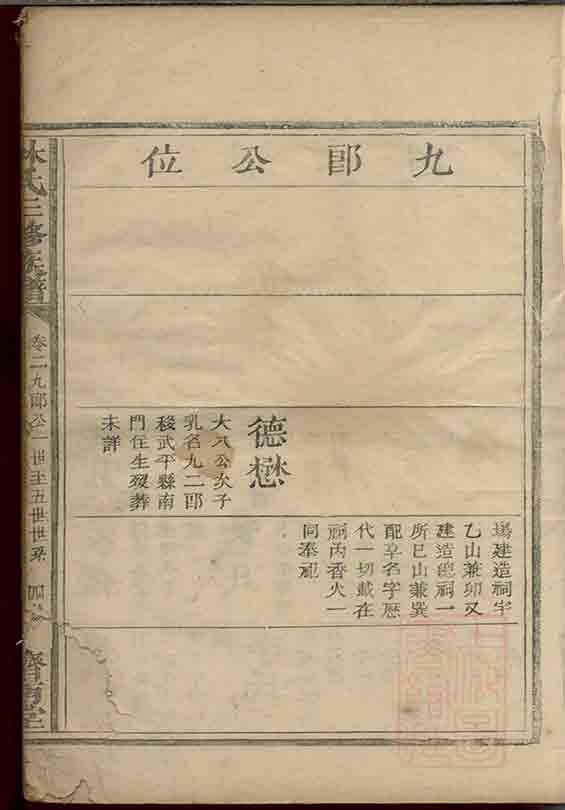 九郎公位
德懋
大六公次子
乳名九二郎
移武平縣南
門住生歿葬
未詳
場建造祠宇
乙山兼卯又
建造總祠一
所巳山兼巽
配享名字歷
代一切載在
祠內香火一
同奉祀
林氏三修族譜
卷二九郎公一世至五世世系
四
濟南堂